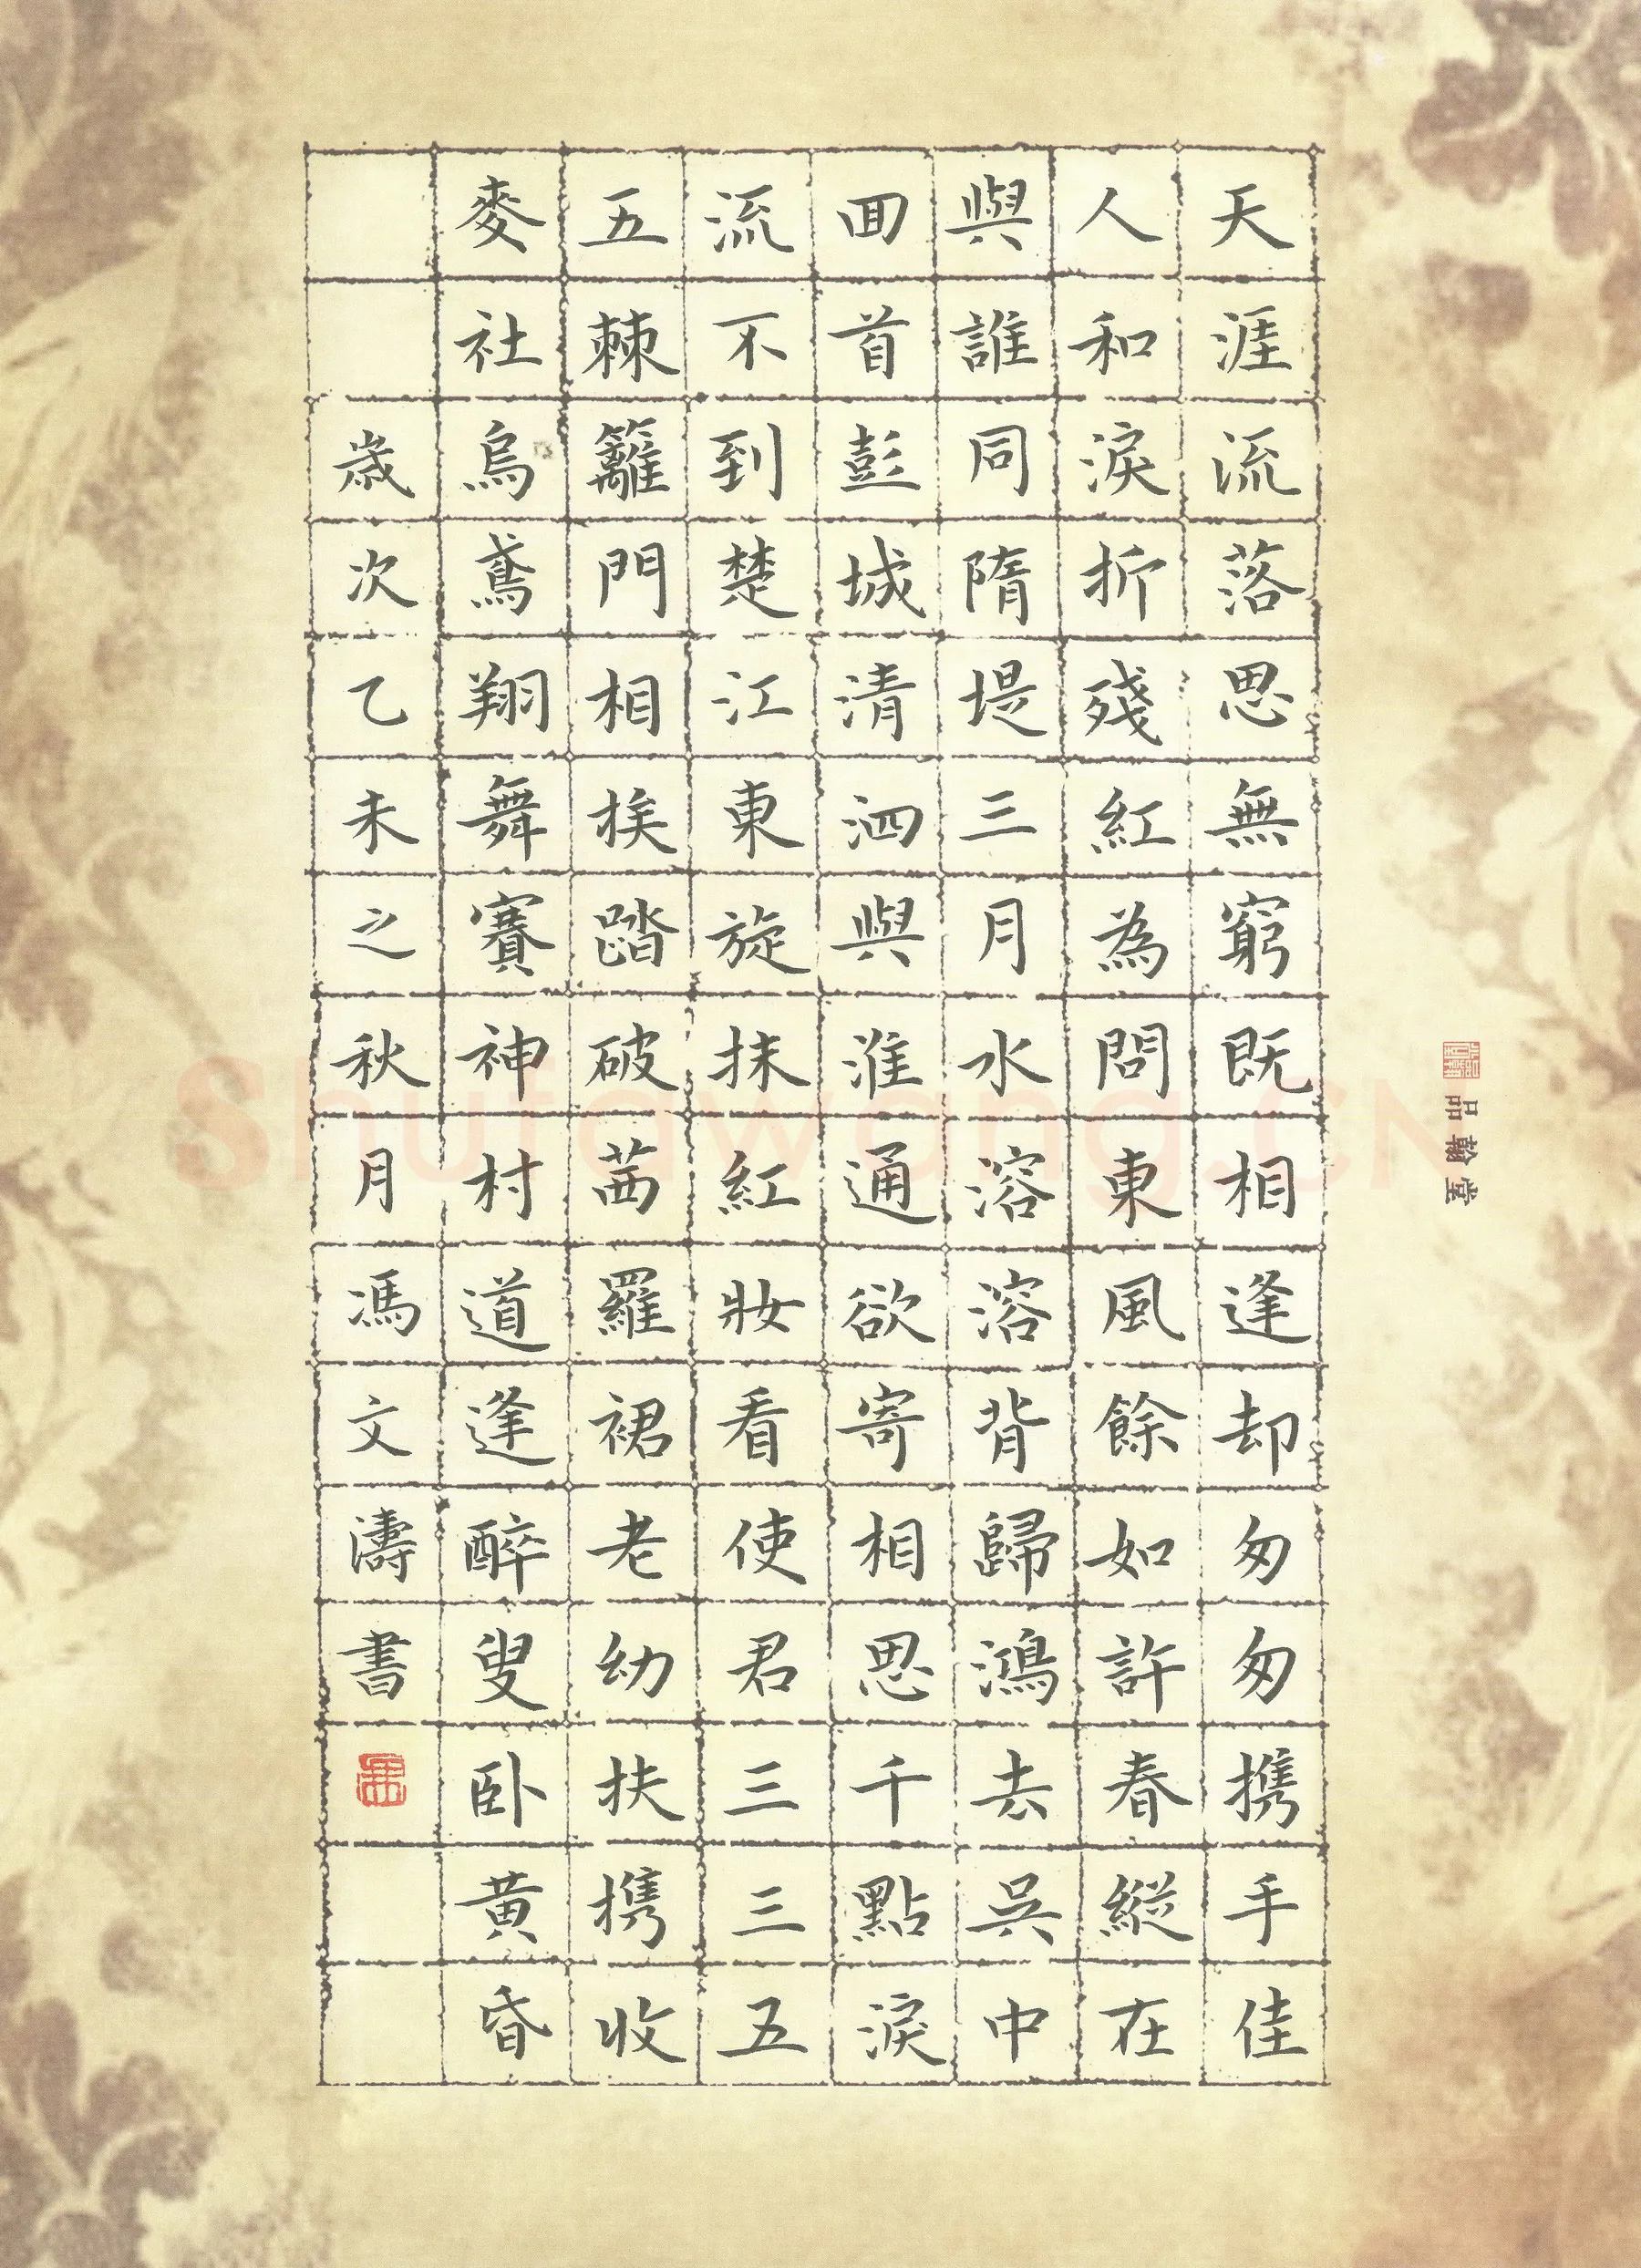 天涯流落思無窮既相逢却匆匆携手佳
人和淚折殘紅為問東風餘如許春縱在
與誰同隋堤三月水溶溶背歸鴻去吳中
回首彭城清泗與淮通欲寄相思千點淚
流不到楚江東旋抹紅妝看使君三三五
五棘籬門相挨踏破茜羅裙老幼扶携收
麥社烏鳶翔舞賽神村道逢醉叟卧黄昏
歲次乙未之秋月馮文濤書
品翰堂
shufawang.CN